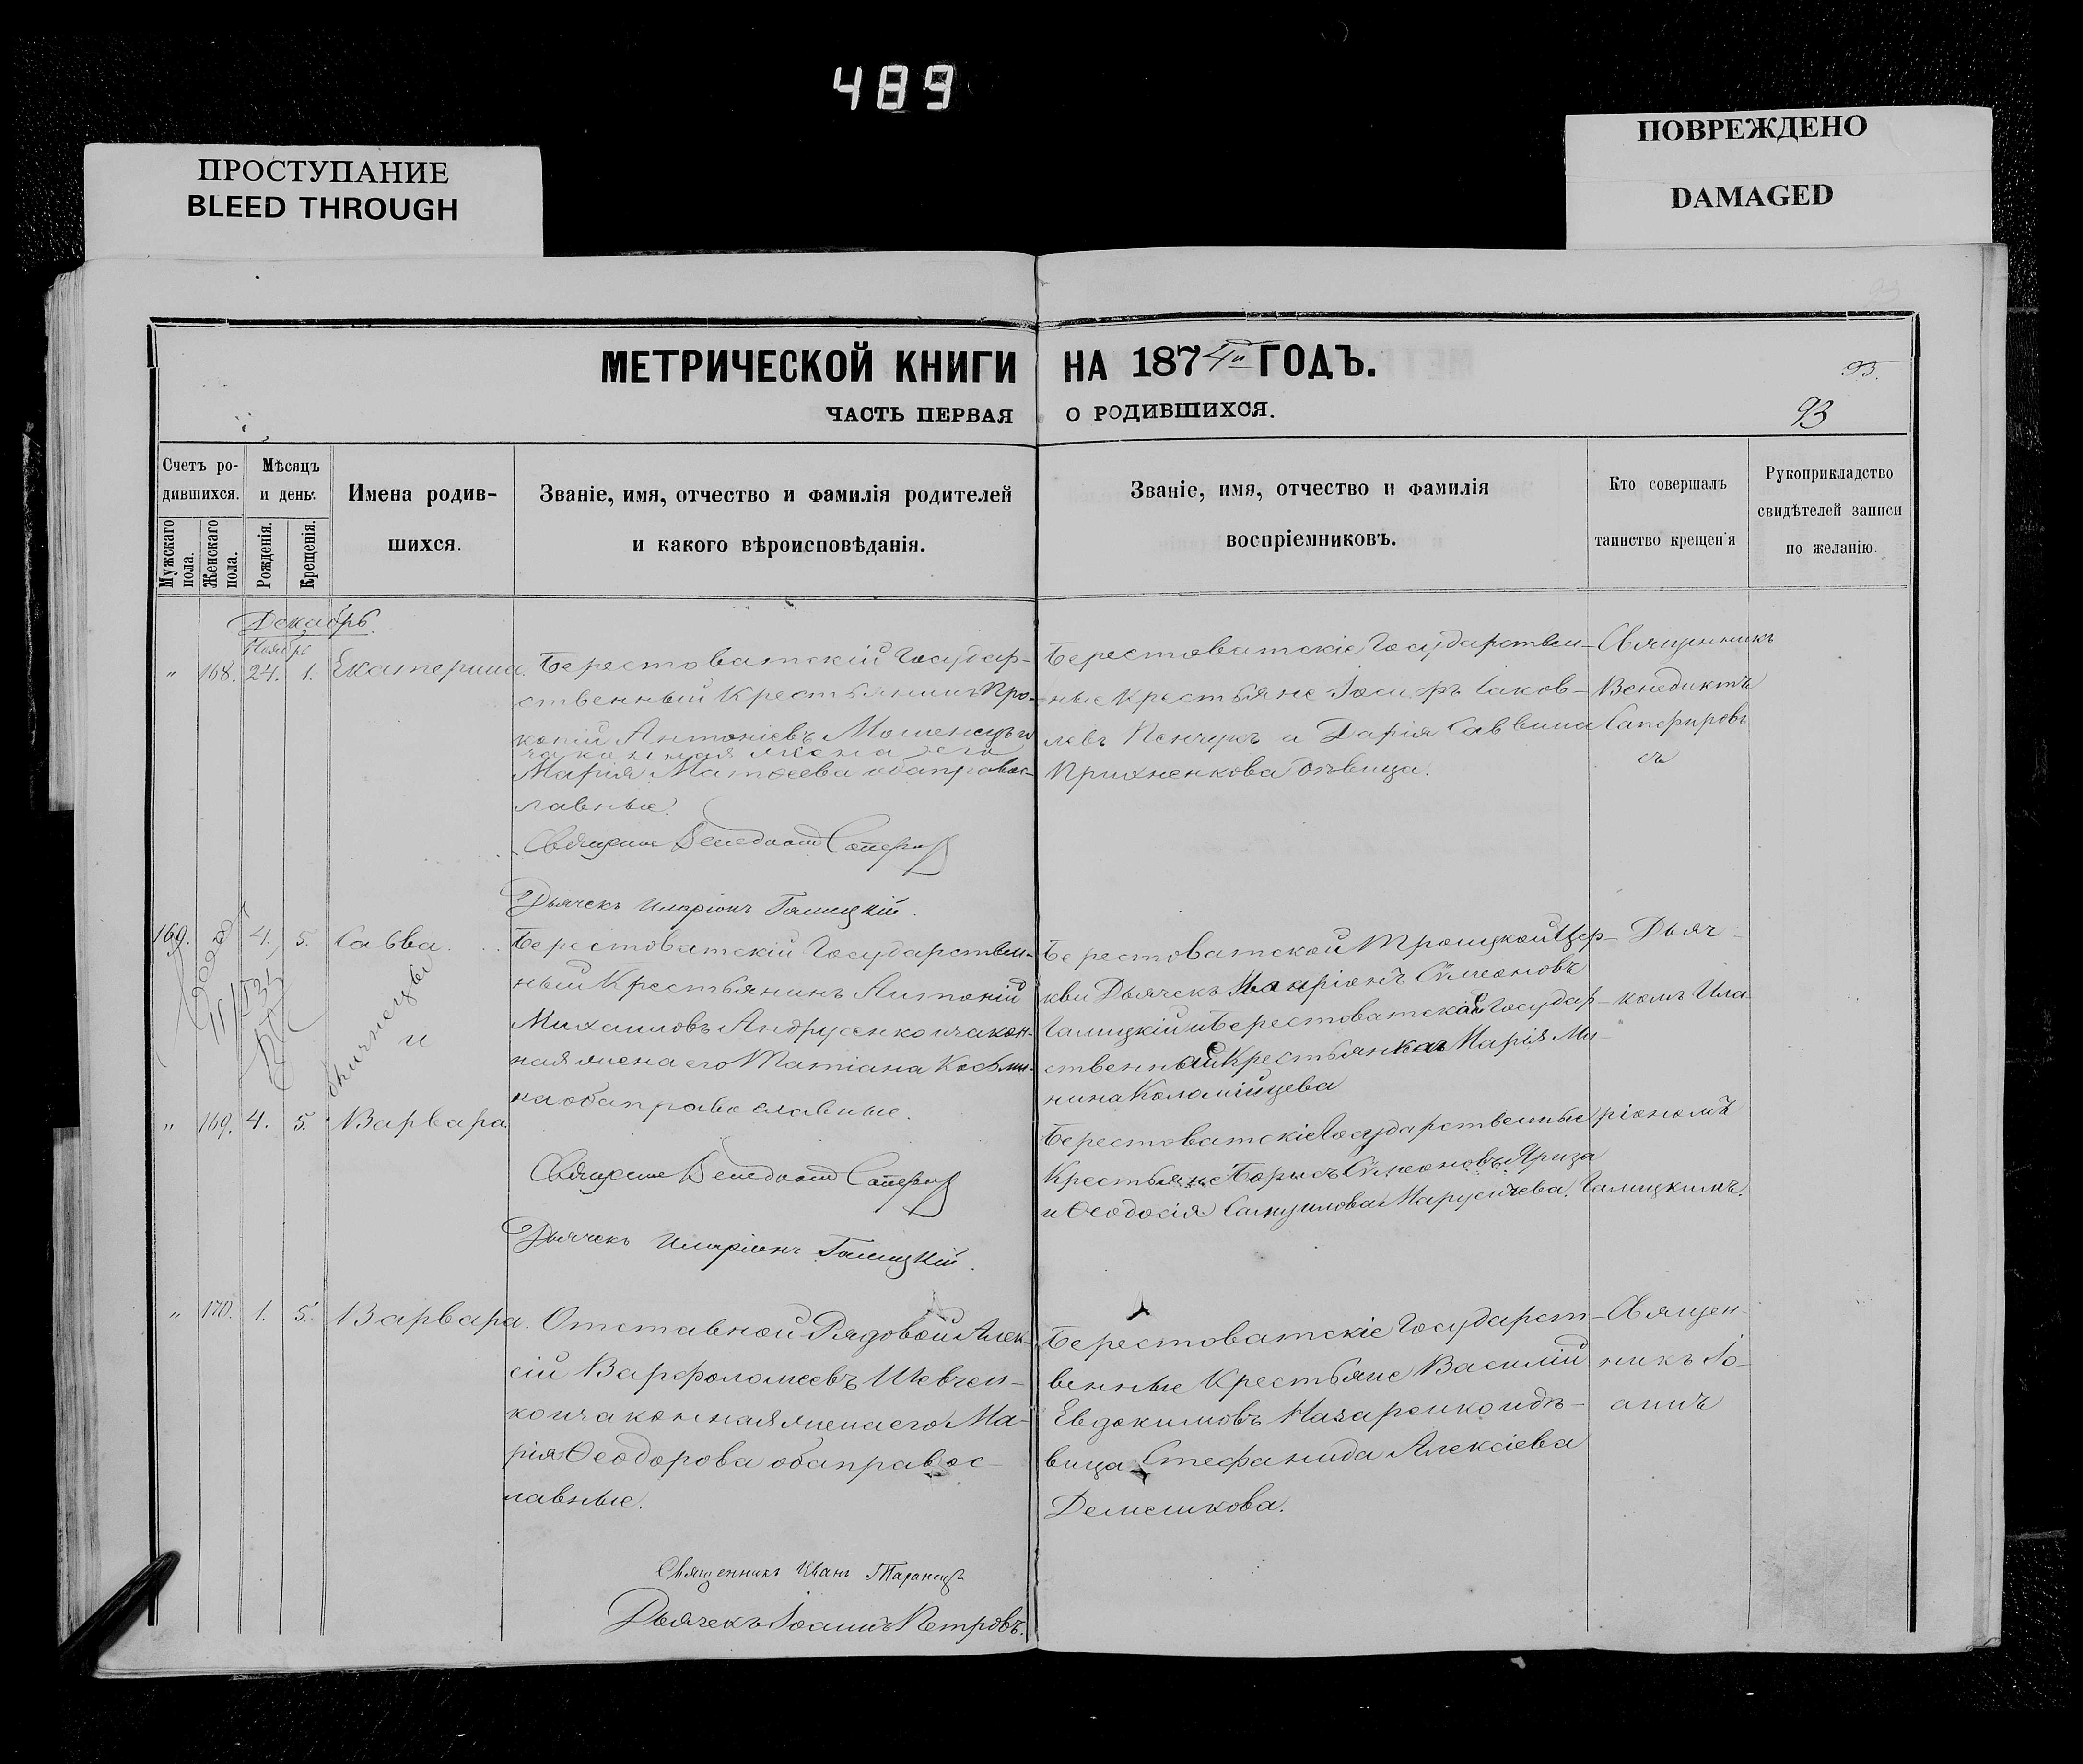 489
ПРОСТУПАНИЕ
BLEED THROUGH
ПОВРЕЖДЕНО
DAMAGED
МЕТРИЧЕСКОЙ КНИГИ НА 1874й ГОДЪ.
95.
ЧАСТЬ ПЕРВАЯ О РОДИВШИХСЯ.
93
Счетъ родившихся.
Мужскаго пола.
Женскаго пола.
Мѣсяцъ и день.
Рожденія.
Крещенія.
Имена родившихся.
Званіе, имя, отчество и фамилія родителей
и какого вѣроисповѣданія.
Званіе, имя, отчество и фамилія
воспріемниковъ.
Кто совершалъ
таинство крещенія
Рукоприкладство
свидѣтелей записи
по желанію.
Декабрь
Ноябрь
" 168. 24. 1. Екатерина.
Берестоватскій Государ-
ственный Крестьянинъ Про-
копій Антоніевъ Мошенецъ и
законная жена его
Марія Матѳеева оба правос-
лавные.
Берестоватскіе Государствен-
ные Крестьяне Іосифъ Іаков-
левъ Пенчукъ и Дарія Саввина
Прихненкова дѣвица.
Священникъ
Венедиктъ
Сапфировъ
Дьячекъ Иларіонъ Галицкій.
169. 4. 5. Савва.
близнецы
и
" 169. 4. 5. Варвара
Берестоватскій Государствен-
ный Крестьянинъ Антоній
Михаиловъ Андрусенко и закон-
ная жена его Татіана Косьми-
на оба православные.
Берестоватской Троицкой Цер-
кви Дьячекъ Иларіонъ Сѵмеоновъ
Галицкій и Берестоватская Государ-
ственная Крестьянка Марія Ми-
нина Коломійцева
Берестоватскіе Государственные
Крестьяне Борисъ Сѵмеоновъ Яриза
и Ѳеодосія Самуилова Марусичева.
Дьяч-
комъ Ила-
ріономъ
Галицкимъ.
Дьячекъ Иларіонъ Галицкій.
" 170. 1. 5. Варвара.
Отставной Рядовой Алек-
сій Варфоломеевъ Шевчен-
ко и законная жена его Ма-
рія Ѳеодорова оба правос-
лавные.
Берестоватскіе Государст-
венные Крестьяне Василій
Евдокимовъ Назаренко и дѣ-
вица Стефанида Алексіева
Демешкова.
Священ-
никъ Іо-
аннъ
Священникъ Иванъ Таранецъ
Дьячекъ Іоаннъ Петровъ.